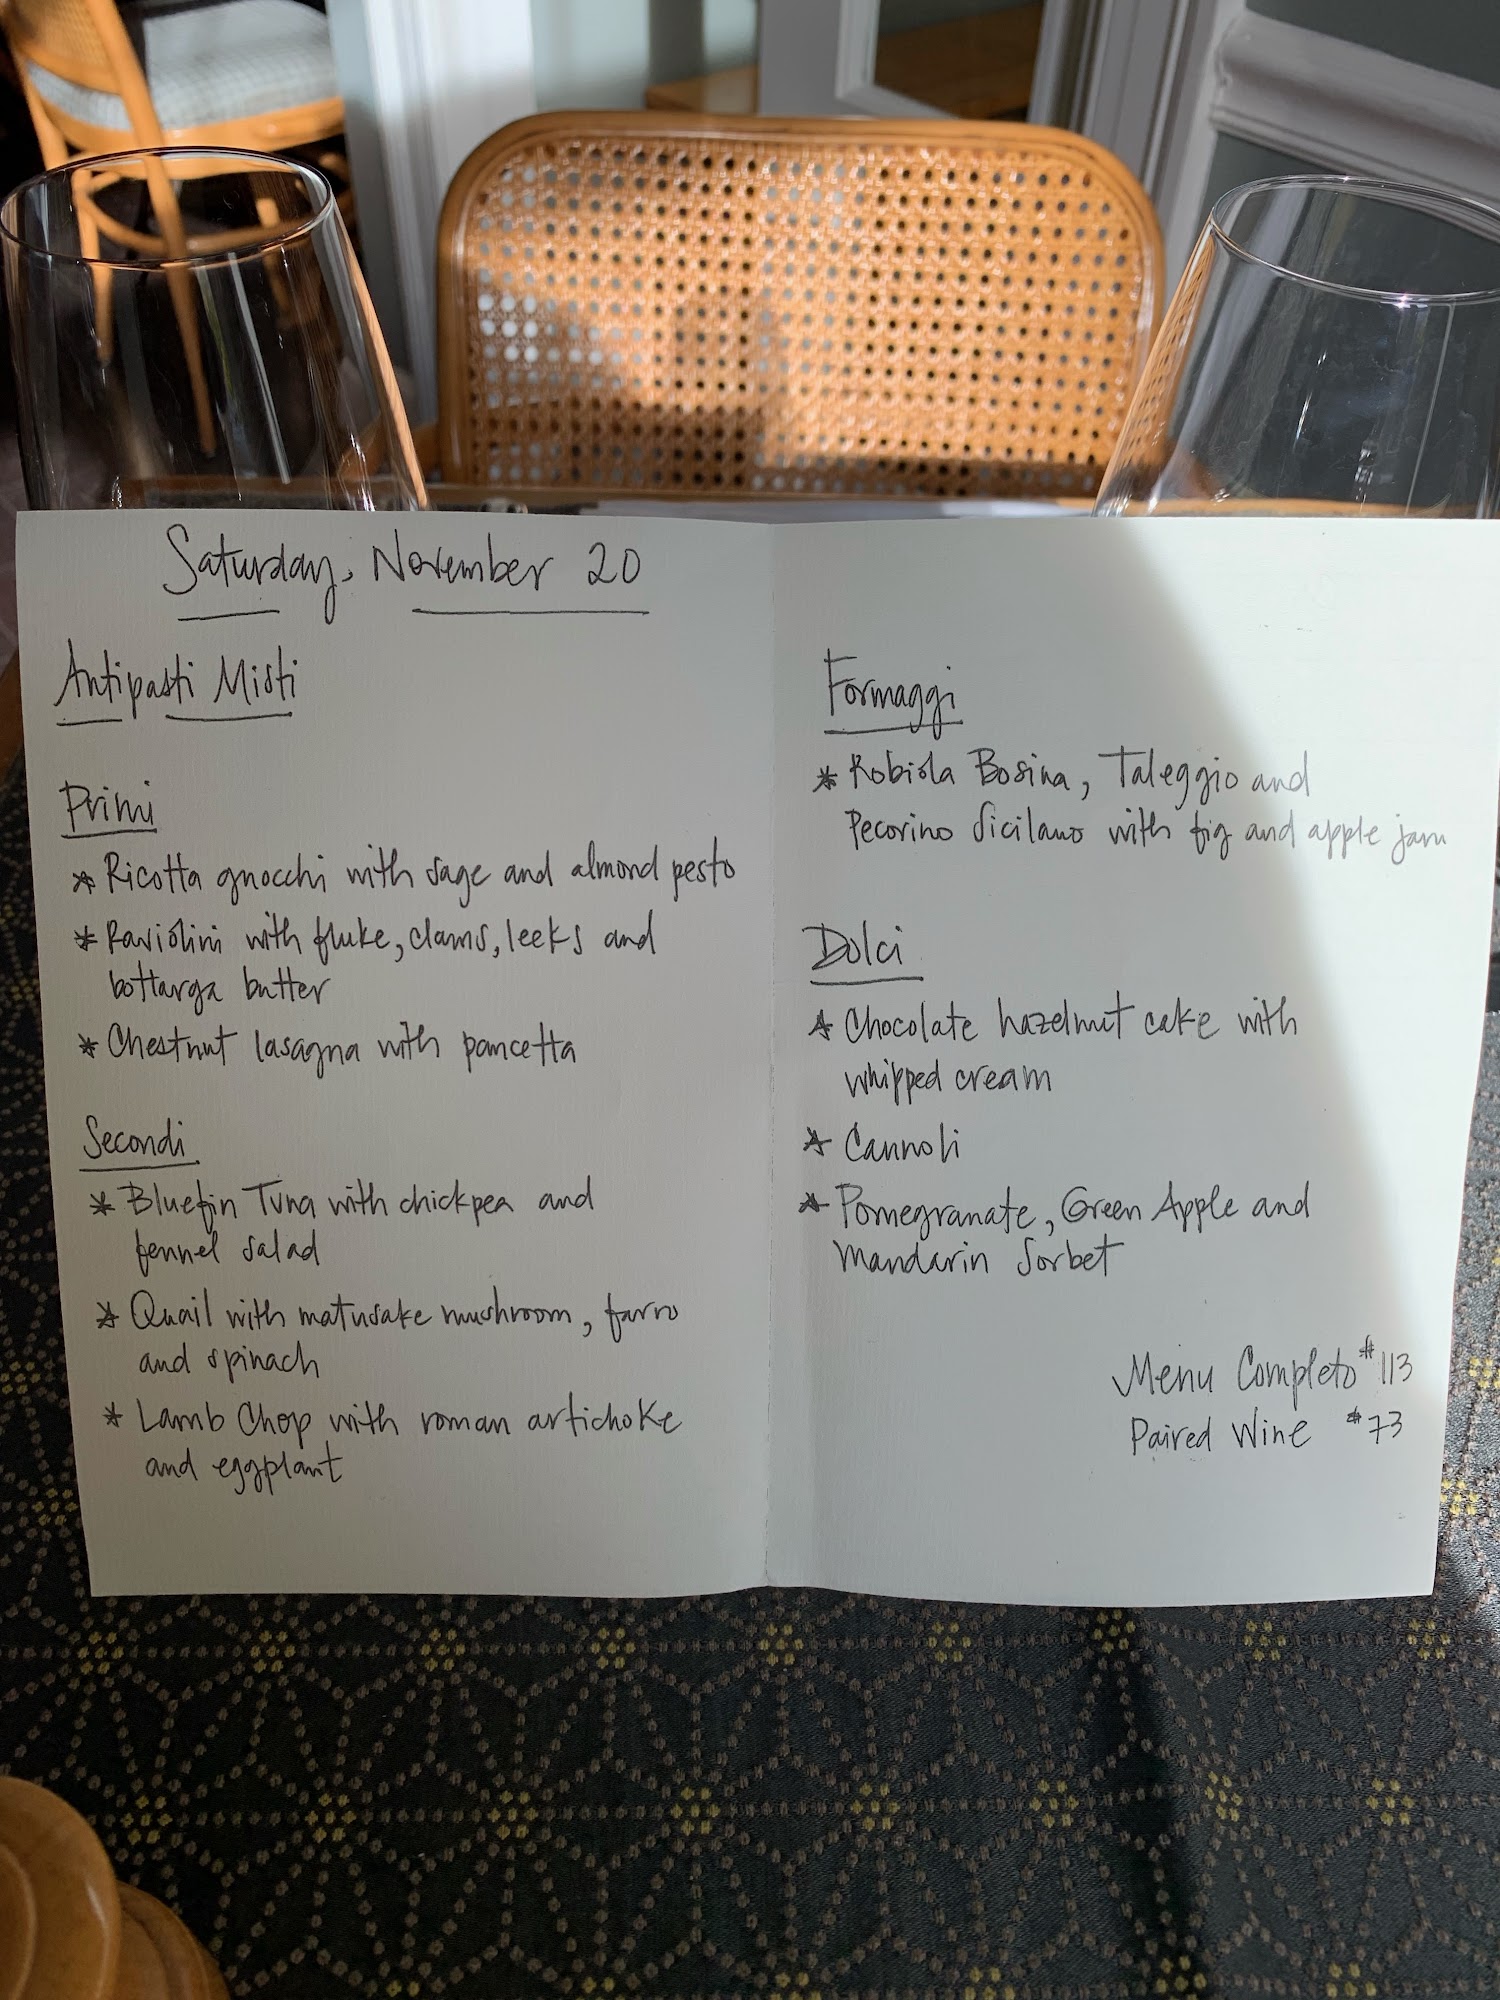 Saturday, November 20
Antipasti Misti
Primi
* Ricotta gnocchi with sage and almond pesto
* Raviolini with fluke, clams, leeks and
bottarga butter
* Chestnut lasagna with pancetta
Secondi
* Bluefin Tuna with chickpea and
fennel salad
* Quail with matusake mushroom, farro
and spinach
* Lamb Chop with roman artichoke
and eggplant
Formaggi
* Robiola Bosina, Taleggio and
Pecorino Siciliano with fig and apple jam
Dolci
* Chocolate hazelnut cake with
whipped cream
* Cannoli
* Pomegranate, Green Apple and
Mandarin Sorbet
Menu Completo #113
Paired Wine #73